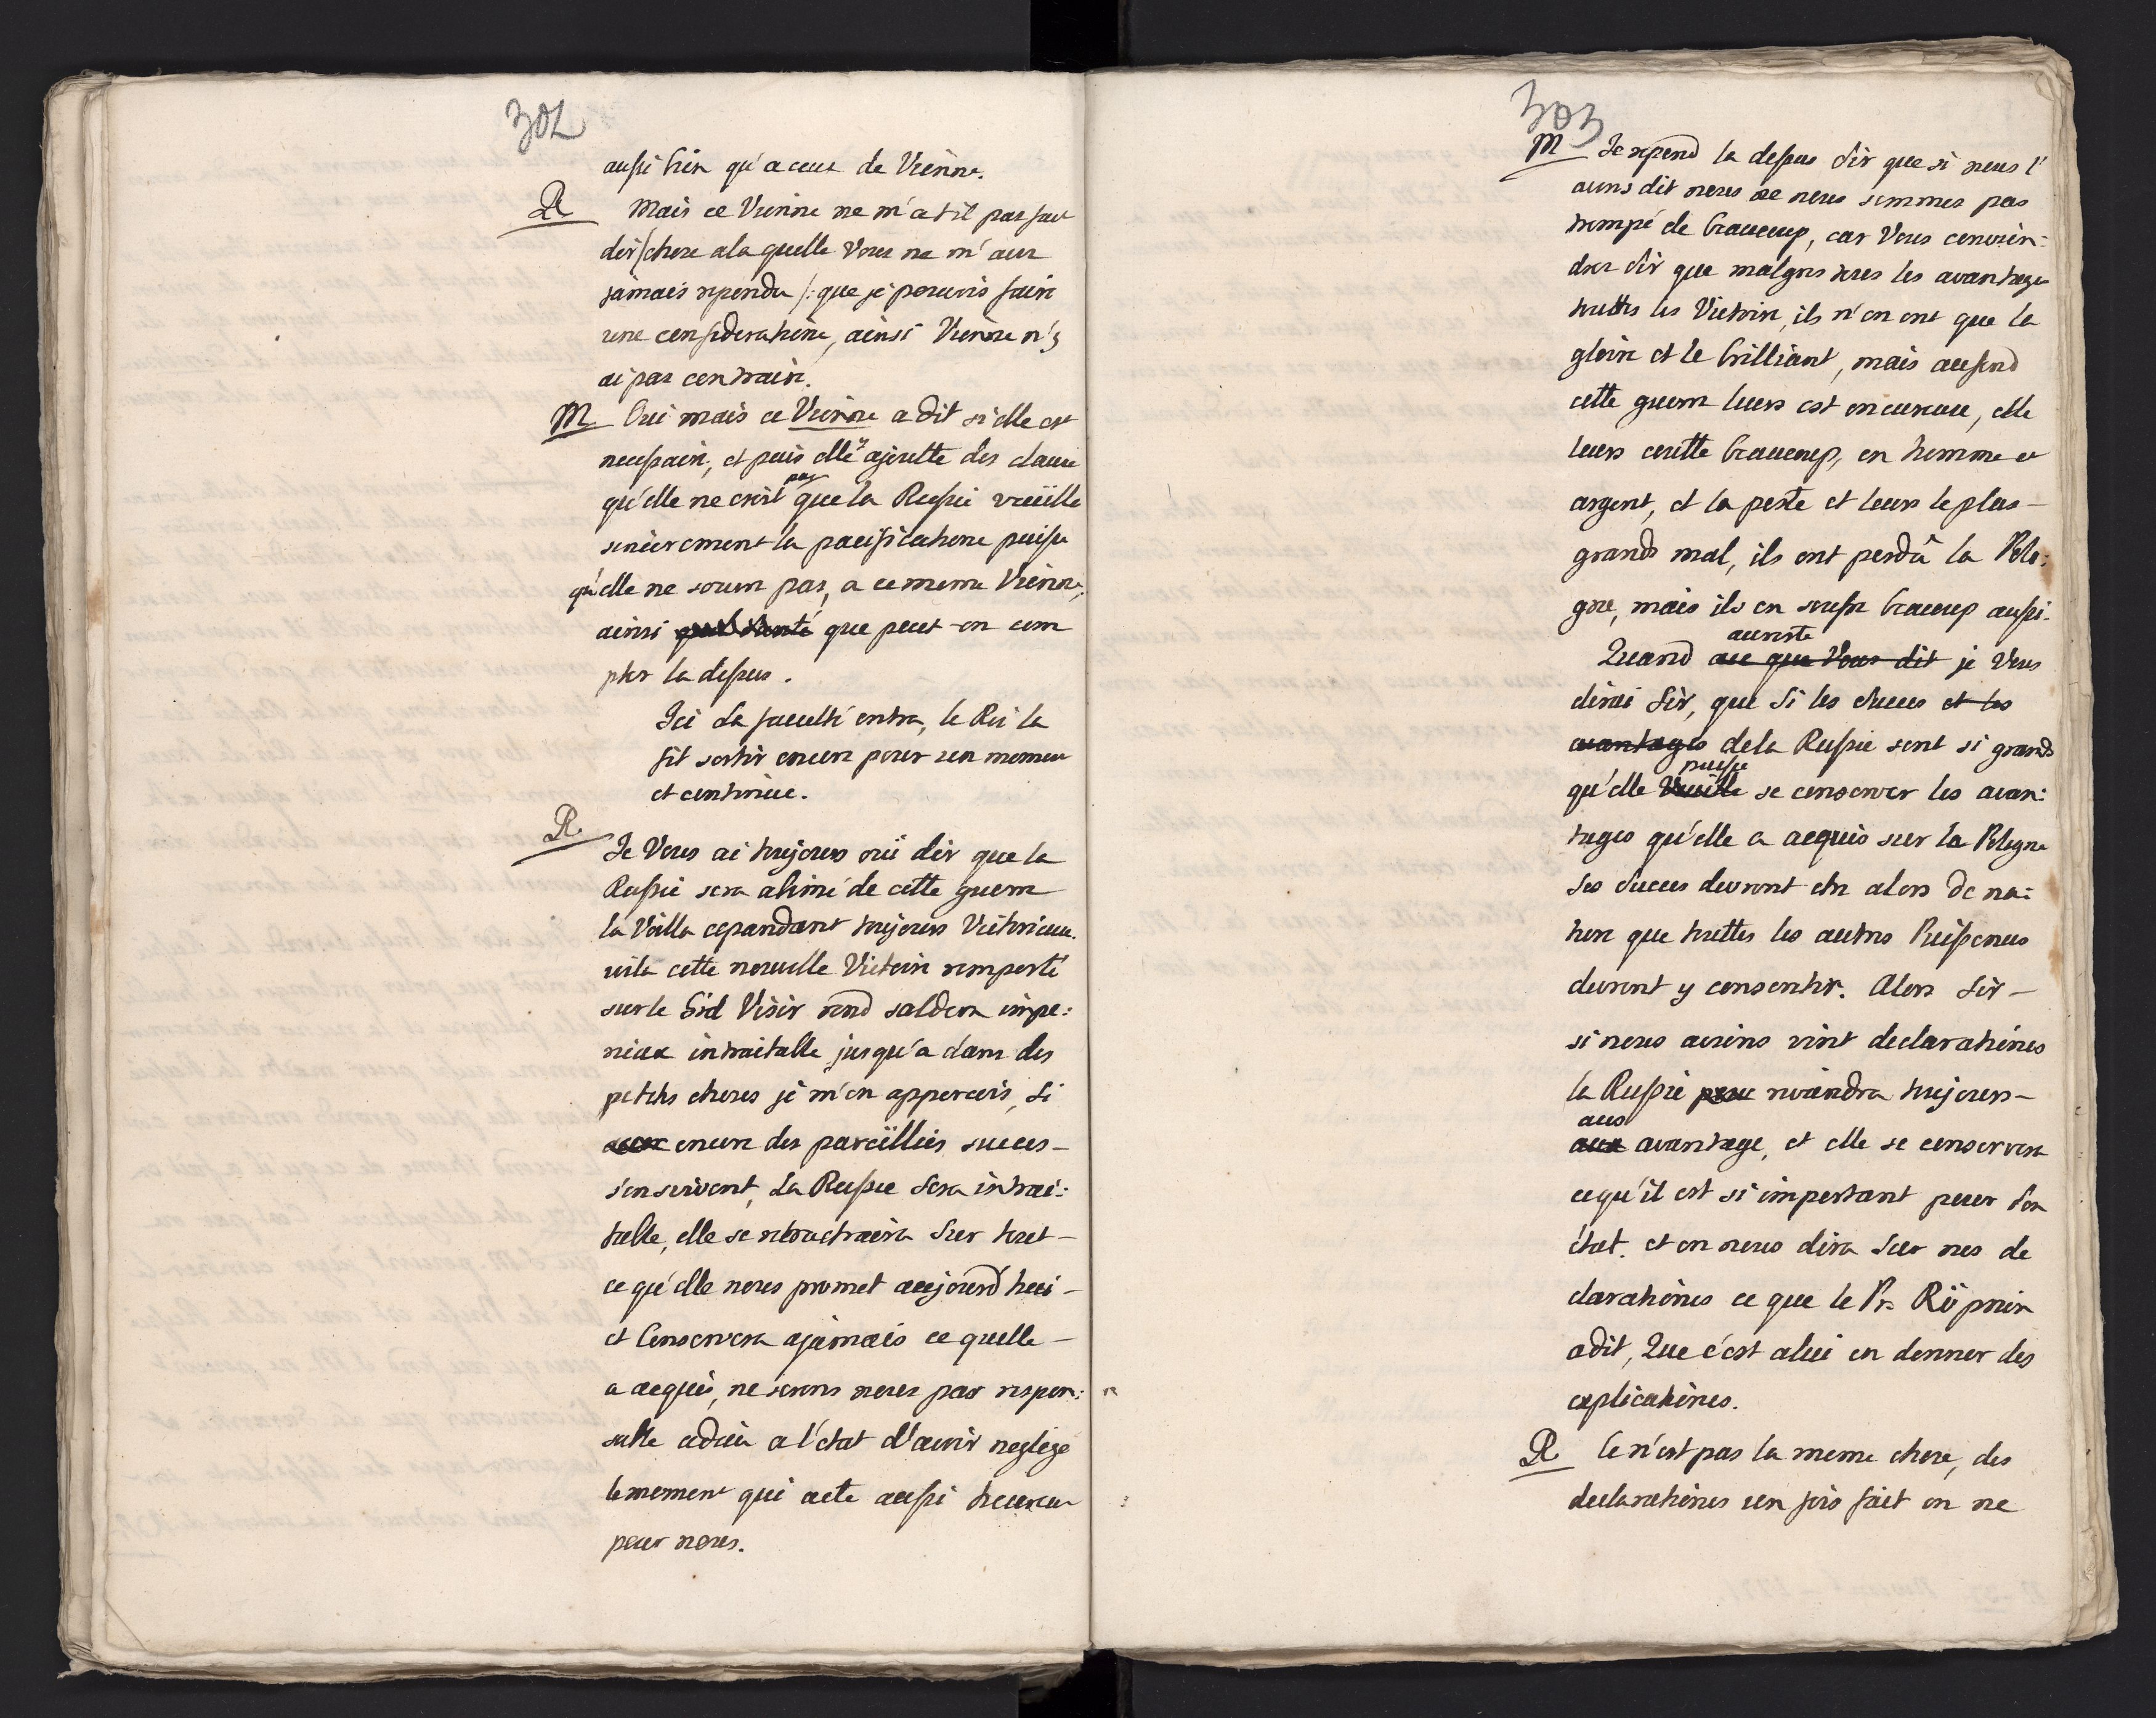 302
aussi bien qu'a ceux de Vienne.
R Mais ce Vienne ne m'a t'il pas fait
dir/:chose ala quelle Vous ne m'aves
jamais repondu/: que je pouvois faire
une consideratione, ainsi Vienne n'y
ai pas contraire.
M Oui mais ce Vienne a dit si elle est
necessaire, et puis elle y ajoutte des clause
qu'elle ne croit pas que la Russie veüille
sincerement la pacificatione puisse
qu'elle ne souvre pas, a ce meme Vienne,
ainsi que peut-on com
pter la dessus.
Ici La faculté entra, le Roi la
fit sortir encore pour un moment
et continüe.
R. Je Vous ai toujours oüi dir que la
Russie sera abimé de cette guerre
la Voilla cepandant toujours Victorieuse.
voila cette nouvelle Victoire remporté
sur le Gid Visir rend saldern impe:
rieux intraitable jusqu'a dans des
petites choses je m'en appercois, Si
encore des pareïlles succes -
s'ensuivent, La Russie sera intrai:
table, elle se retractraira Sur tout -
ce qu'elle nous promet aujourd'hui -
et Conservera ajamais ce quelle -
a acquis, ne serons nous pas respon:
sable adieu a l'état d'avoir neglige
le moment qui aete aussi heureux
pour nous.
303
M Je repond la dessus Sir que si nous l'
avons dit nous ne nous sommes pas
trompé de beaucoup, car Vous convien:
dres Sir que malgres tous les avantages
touttes les Victoire, ils n'en ont que la
gloire et le brilliant, mais aufond
cette guerre leurs est onereuse, elle
leurs coutte beaucoup, en homme et
argent, et la peste et leurs le plus -
grands mal, ils ont perdû la Polo:
gne, mais ils en soufre beaucoup aussi.
Quand aureste ace que Vous dit je Vous
dirai Sir, que Si les succes et les
avantages dela Russie sont si grands
qu'elle puisse Vueille se conserver les avan:
tages qu'elle a acquis sur la Pologne
Ses Succes devront etre alors de na:
ture que touttes les autres Puissences
devront y consentir. Alors Sir -
si nous avions vint declarationes
la Russie reviendra toujours -
aus aux avantage, et elle se conservera
cequ'il est si important pour Son
état. et on nous dira Sur nos de
clarationes ce que le Pr. Röpnin
adit, Que c'est alui en donner des
explicationes.
R Ce n'est pas la meme chose, des
declarationes un fois fait on ne